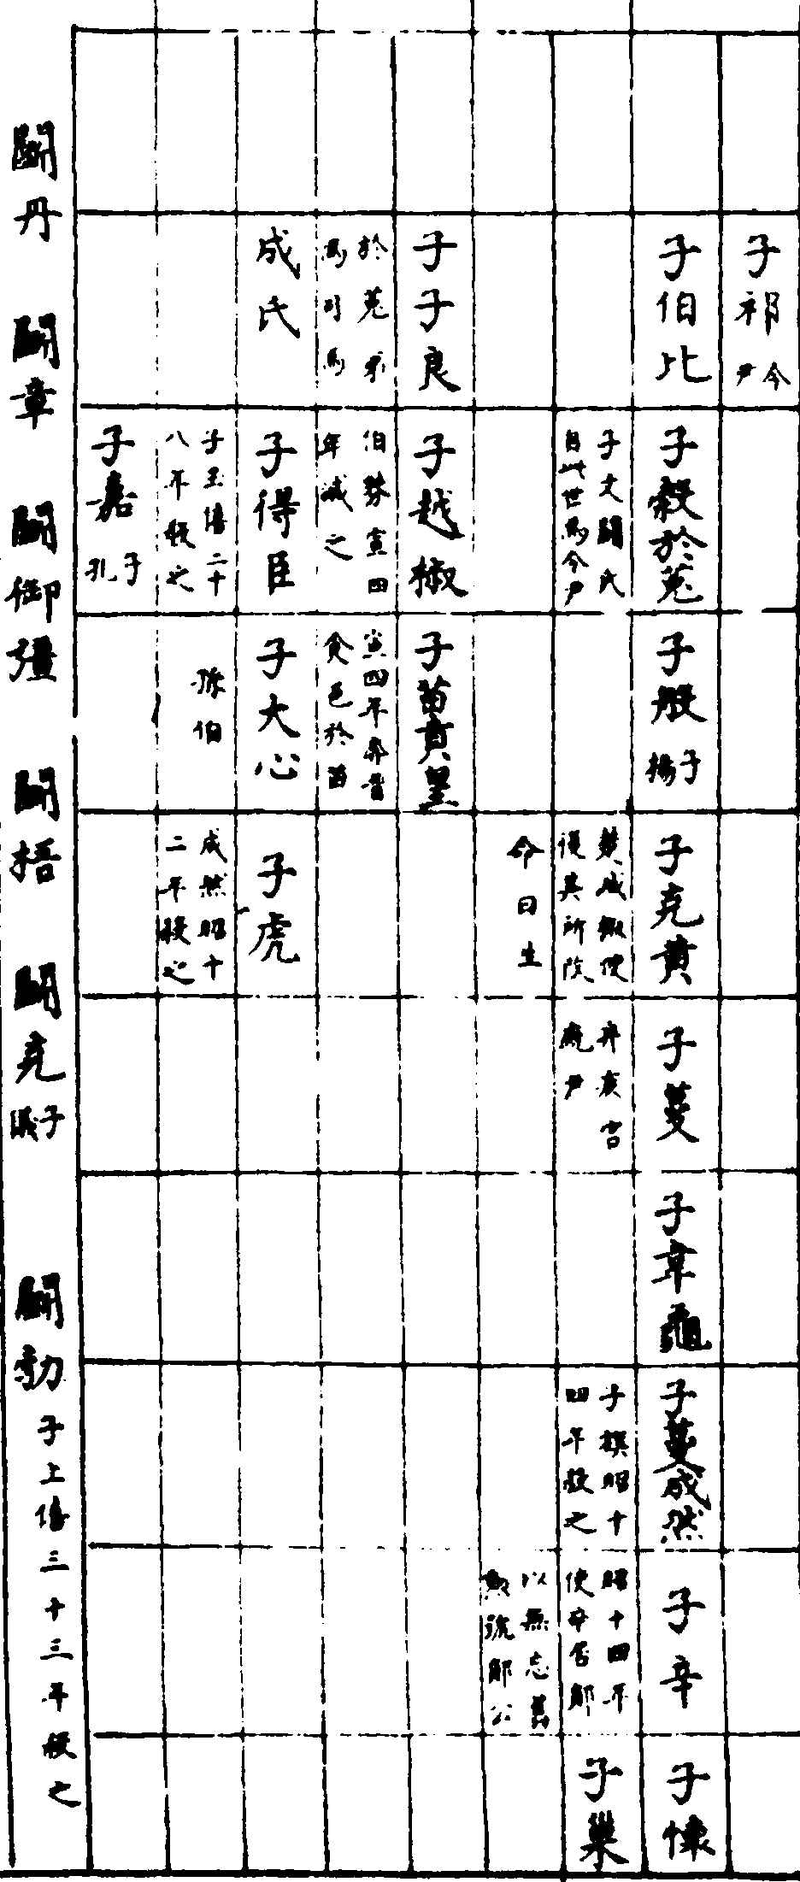 子祁令尹
子伯比
子穀於菟
子文鬬氏
自此世爲令尹
子般子揚
子克黃
楚成
復其所改
命曰生
子蔓
子韋龜
子蔓成然
子旗昭十
四年殺之
子辛
昭十四年
使辛居鄖
以無忘舊
勲號鄖公
子懷
子巢
子子良
於菟弟
爲司馬
子越椒
伯棼宣四
年滅之
子苗賁皇
宣四年奔晉
食邑於苗
成氏
子得臣
子玉僖二十
八年殺之
子大心
孫伯
子虎
成熊昭十
二年殺之
子嘉子孔
鬬丹
鬬章
鬬御彊
鬬梧
鬬克子儀
鬬勃子上僖三十三年殺之